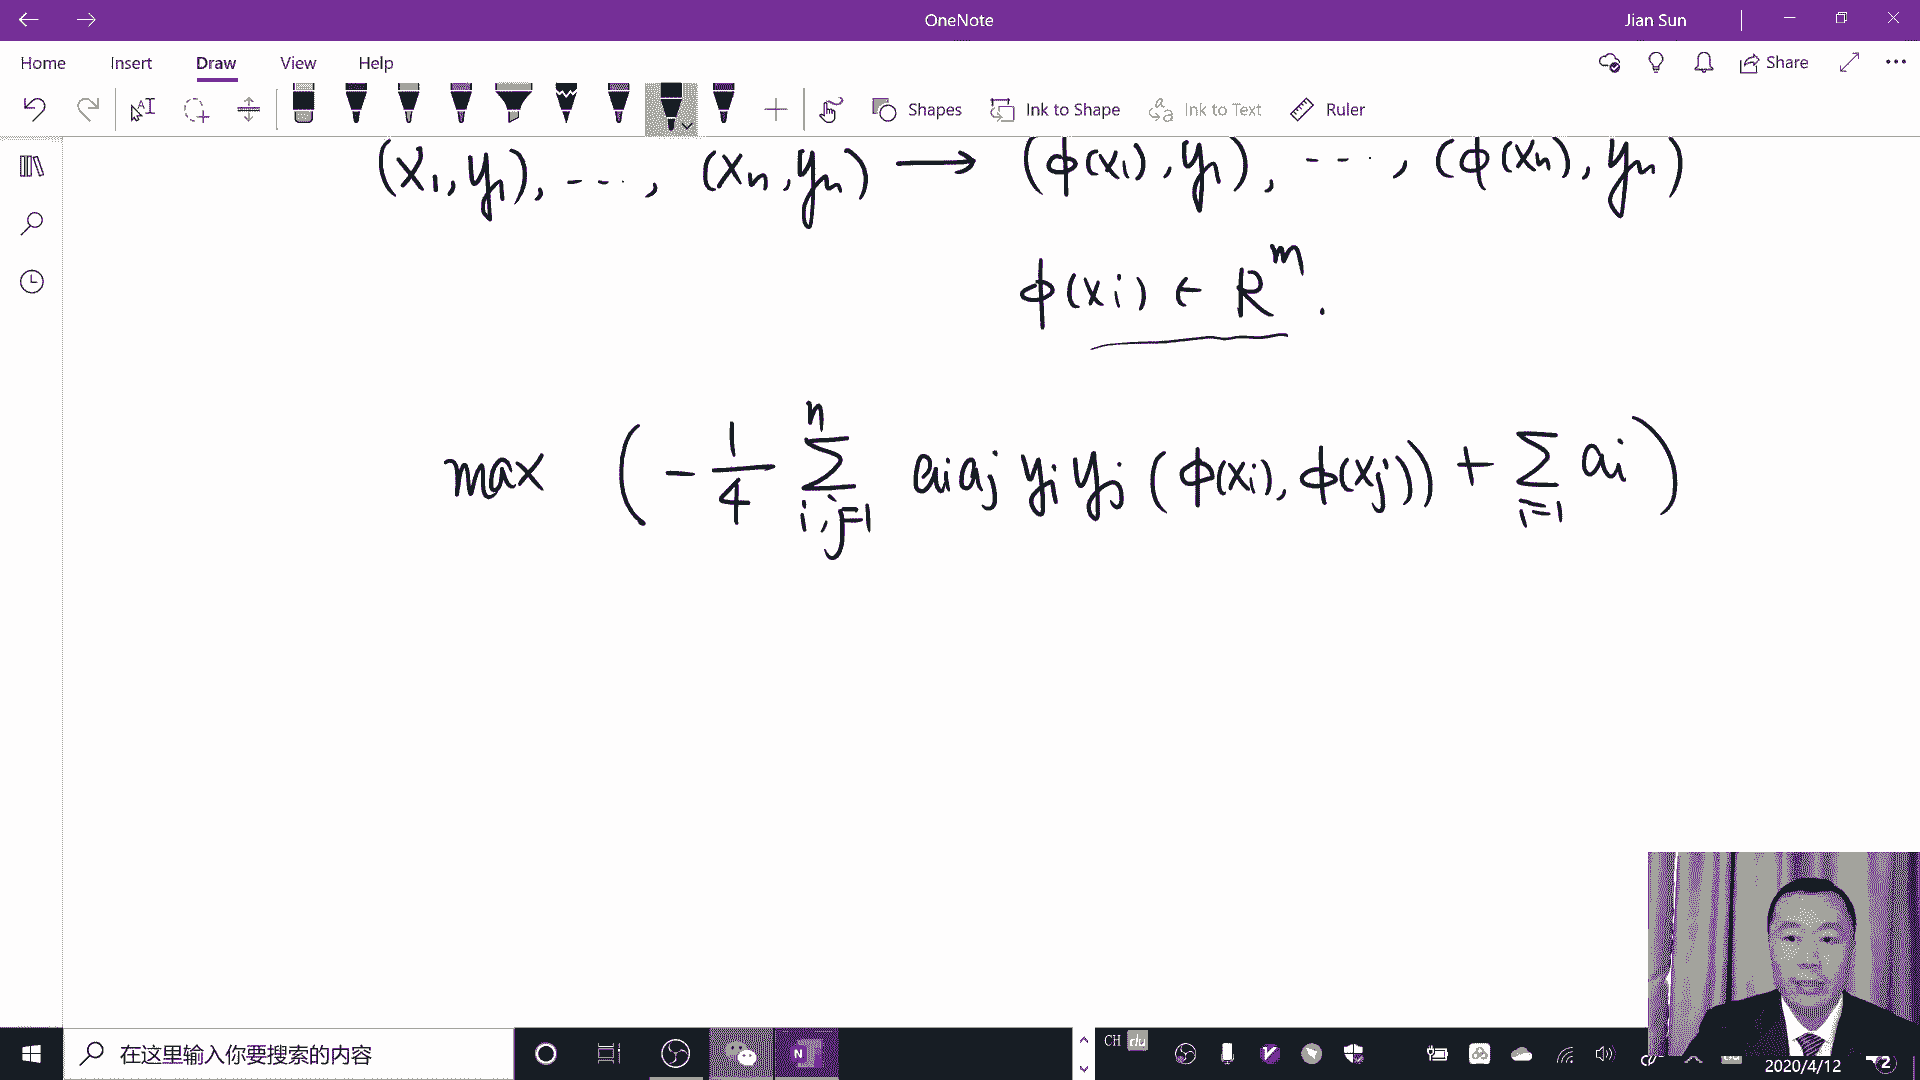 OneNote
Jian Sun
Home Insert Draw View Help
Share
Shapes Ink to Shape Ink to Text Ruler
(x₁, y₁), ..., (xₙ, yₙ) → (ϕ(x₁), y₁), ..., (ϕ(xₙ), yₙ)
ϕ(xᵢ) ∈ Rᵐ.
max ( - 1/4 ∑ⁿ i,j=1 aᵢaⱼ yᵢyⱼ (ϕ(xᵢ), ϕ(xⱼ)) + ∑ i=1 aᵢ )
在这里输入你要搜索的内容
CH
du
2020/4/12
2